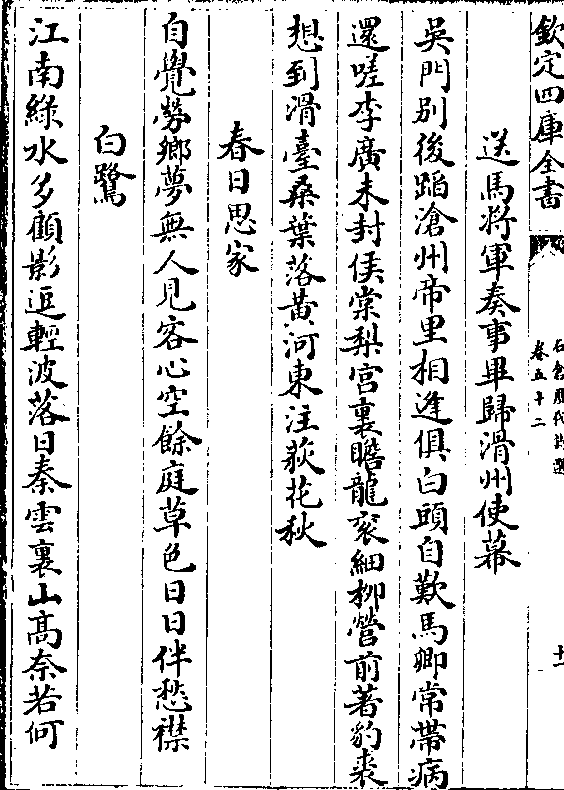 欽定四庫全書
石倉歷代詩選
卷五十二
十一
送馬將軍奏事畢歸滑州使幕
吳門別後蹈滄州帝里相逢俱白頭自歎馬卿常帶病
還嗟李廣未封侯棠梨宮裏瞻龍衮細柳營前著豹裘
想到滑臺桑葉落黃河東注荻花秋
春日思家
自覺勞鄉夢無人見客心空餘庭草色日日伴愁襟
白鷺
江南綠水多顧影逗輕波落日秦雲裏山高奈若何